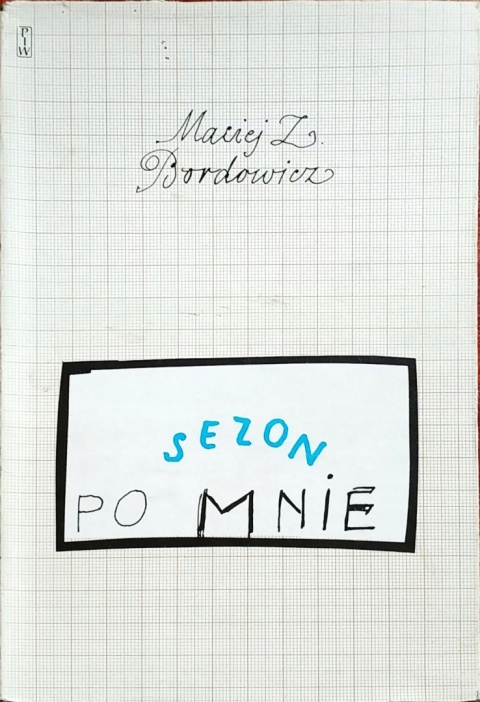 PIW
Maciej Z.
Bordowicz
SEZON
PO MNiE